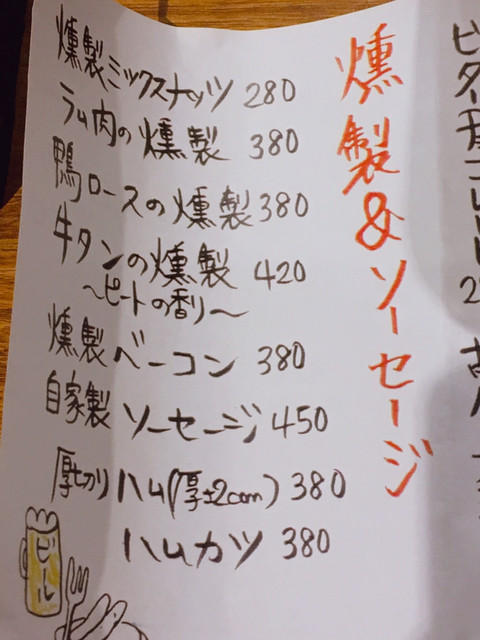 燻製&ソーセージ
燻製ミックスナッツ 280
ラム肉の燻製 380
鴨ロースの燻製 380
牛タンの燻製 420
~ピートの香り~
燻製ベーコン 380
自家製ソーセージ 450
厚切りハム(厚±2cm) 380
ハムカツ 380
ビール